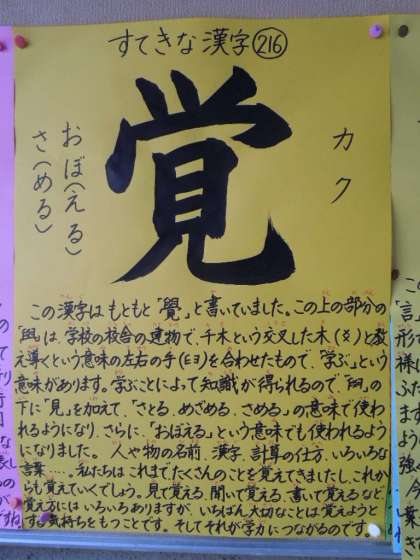 すてきな漢字 216
覚
カク
おぼ(える)
さ(める)
この漢字はもともと「覺」と書いていました。この上の部分の
「𦥯」は、学校の校舎の建物で、千木という交叉した木(爻)と教
え導くという意味の左右の手(𦥑)を合わせたもので、「学ぶ」という
意味があります。学ぶことによって知識が得られるので「𦥯」の
下に「見」を加えて、「さとる、めざめる、さめる」の意味で使わ
れるようになり、さらに、「おぼえる」という意味でも使われるよう
になりました。人や物の名前、漢字、計算の仕方、いろいろな
言葉……。私たちはこれまでたくさんのことを覚えてきましたし、これか
らも覚えていくでしょう。見て覚える、聞いて覚える、書いて覚えるなど
覚え方にはいろいろありますが、いちばん大切なことは覚えようと
する気持ちをもつことです。そしてそれが学力につながるのです。